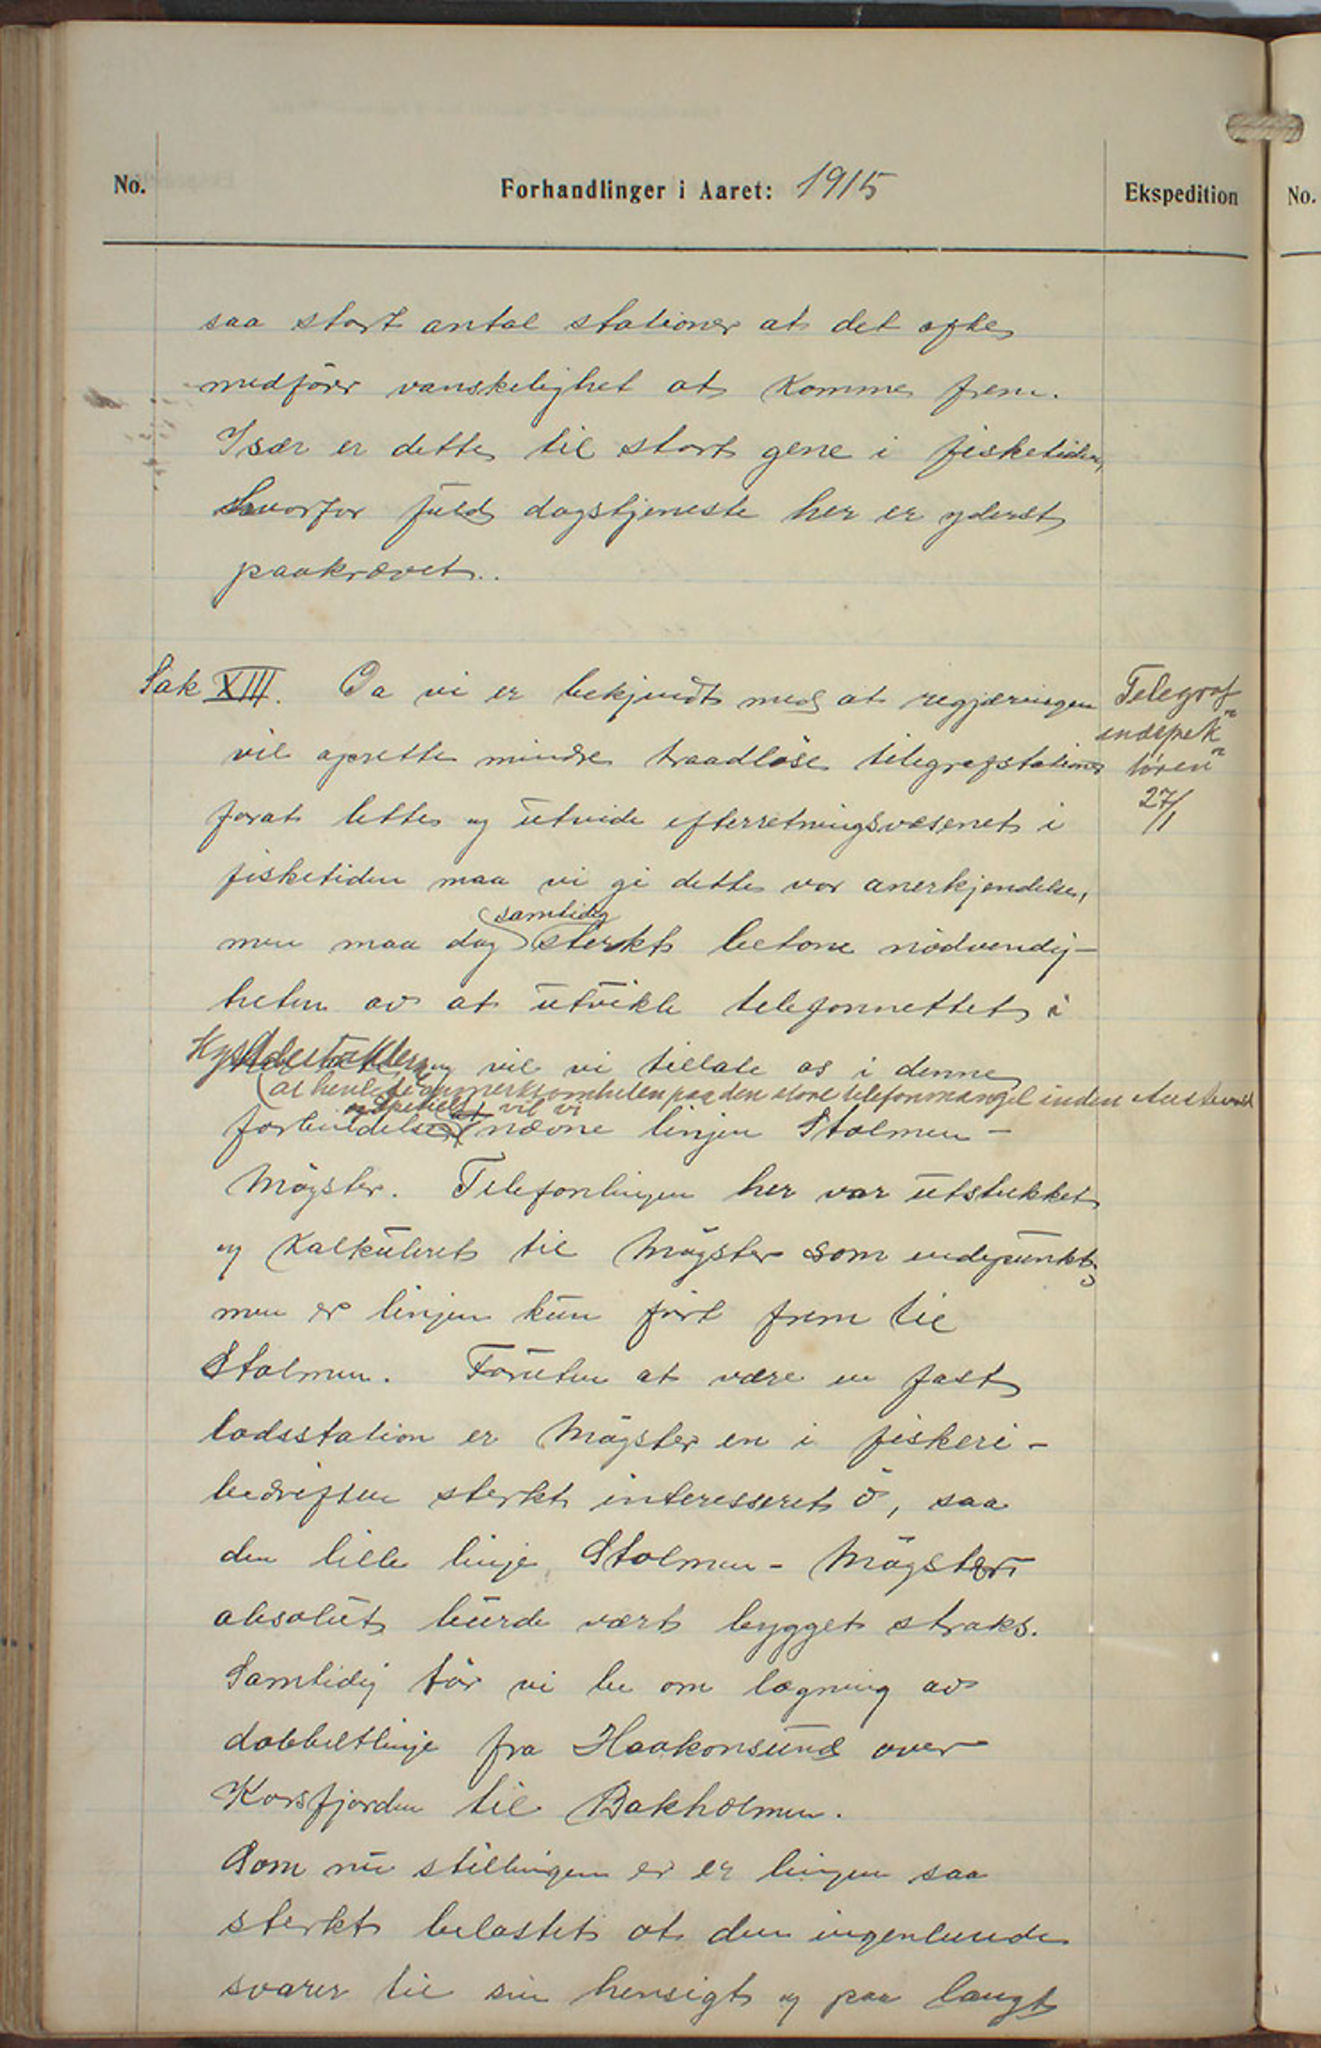 No.
Forhandlinger i Aaret: 1915
Ekspedition
No.
saa stort antal stationer at det ofte
medförer vanskelighet at komme frem.
Især er dette til stort gene i fisketiden,
hvorfor fuld dagstjeneste her er yderst
paakrævet.
Sak XIII. Da vi er bekjendt med at regjæringen
vil oprette mindre traadløse telegrafstationer
forat lette og utvide efterretningsvæsenet i
fisketiden maa vi gi dette vor anerkjendelse,
samtidig
men maa dog sterkt betone nödvendig-
heten av at utvikle telefonnettet i
vil vi tillate os i denne
at henlede opmerksomheten paa den store telefonmangel inden Austevold
og specielt vil vi
forbindelse nævne linjen Stolmen -
Mögster. Telefonlinjen her var utstukket
og kalkuleret til Mögster som endepunkt,
men er linjen kun fört frem til
Stolmen. Foruten at være en fast
lodsstation er Mögster en i fiskeri-
bedriften sterkt interesseret ö, saa
den lille linje Stolmen - Mögster
absolut burde vært bygget straks.
Samtidig tör vi be om lægning av
dobbeltlinje fra Haakonsund over
Korsfjorden til Bakholmen.
Som nu stillingen er er linjen saa
sterkt belastet at den ingenlunde
svarer til sin hensigt og paa langt
Telegraf
inspek
tøren
27/1